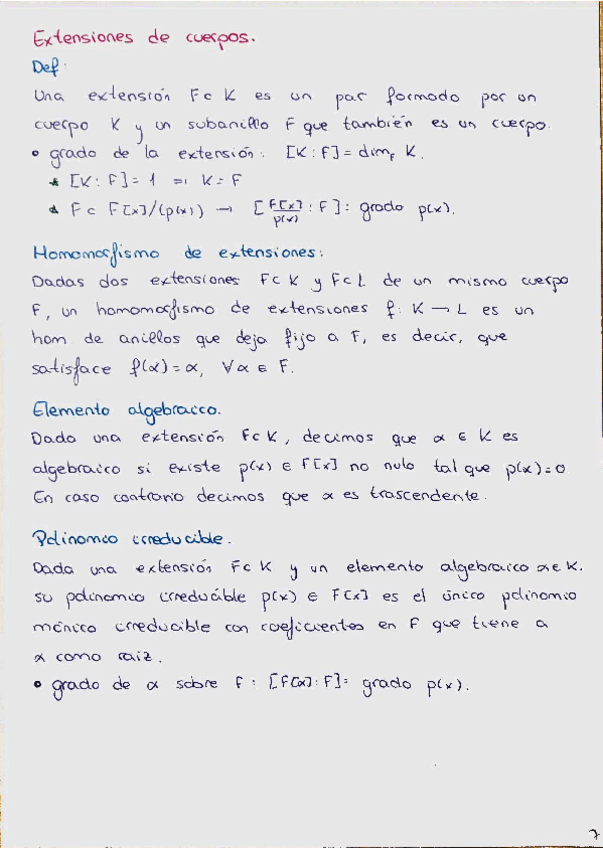 Extensiones de cuerpos.
Def:
Una extensión F ⊂ K es un par formado por un
cuerpo K y un subanillo F que también es un cuerpo.
• grado de la extensión: [K:F] = dim_F K.
* [K:F] = 1 ⇒ K = F
* F ⊂ F[x]/(p(x)) → [F[x]/p(x) : F]: grado p(x).
Homomorfismo de extensiones:
Dadas dos extensiones F ⊂ K y F ⊂ L de un mismo cuerpo
F, un homomorfismo de extensiones f: K → L es un
hom de anillos que deja fijo a F, es decir, que
satisface f(α) = α, ∀α ∈ F.
Elemento algebraico.
Dada una extensión F ⊂ K, decimos que α ∈ K es
algebraico si existe p(x) ∈ F[x] no nulo tal que p(α) = 0
En caso contrario decimos que α es trascendente.
Polinomio irreducible.
Dada una extensión F ⊂ K y un elemento algebraico α ∈ K.
su polinomio irreducible p(x) ∈ F[x] es el único polinomio
mónico irreducible con coeficientes en F que tiene a
α como raiz.
• grado de α sobre F: [F[α]:F] = grado p(x).
7